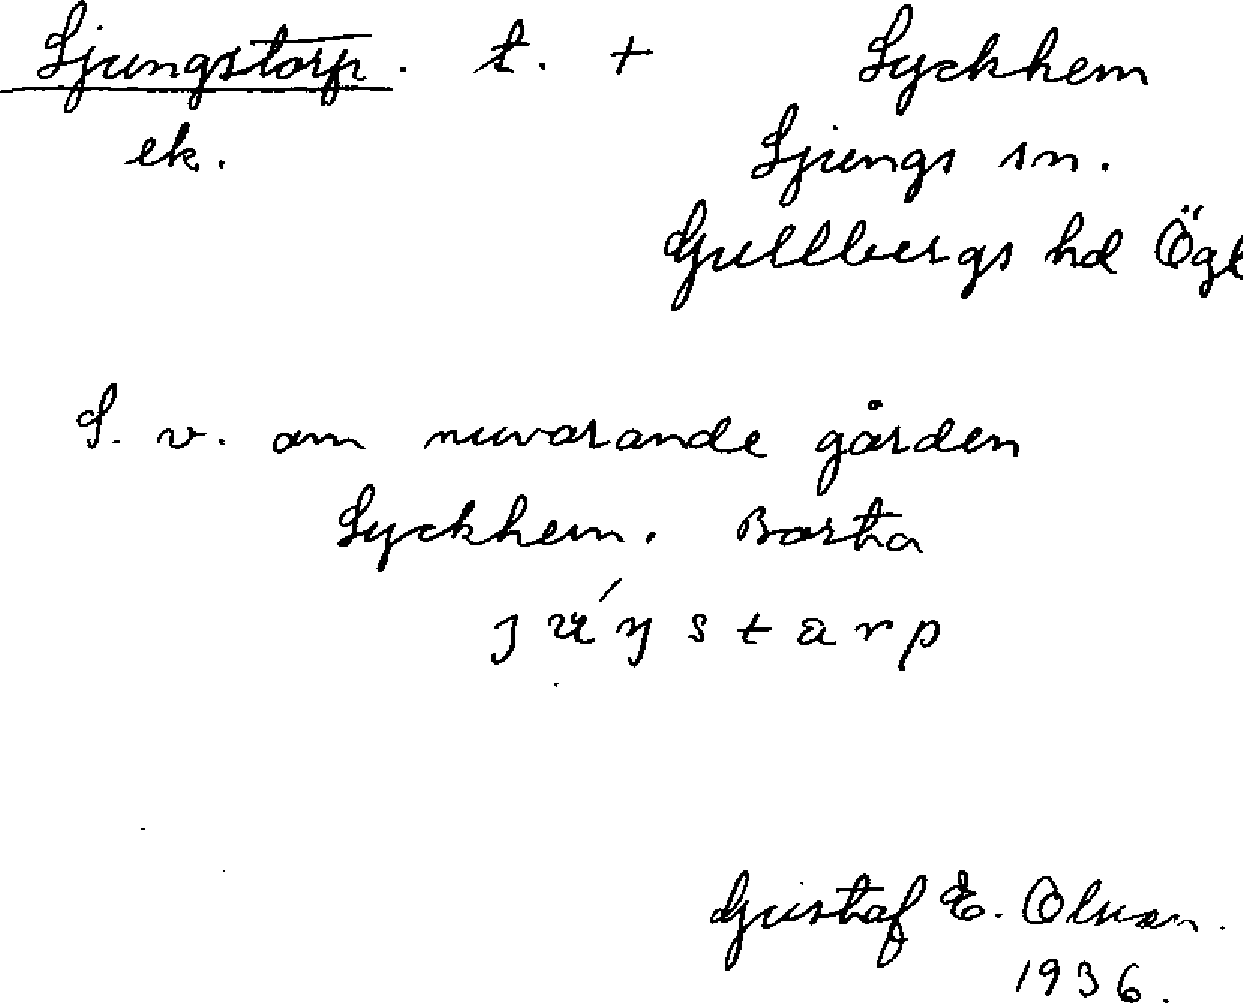 Ljungstorp. t. + Lyckhem
ek. Ljungs sn.
Gullbergs hd Ögl
S. v. om nuvarande gården
Lyckhem. Borta
júŋstarp
Gustaf E. Olsson.
1936.